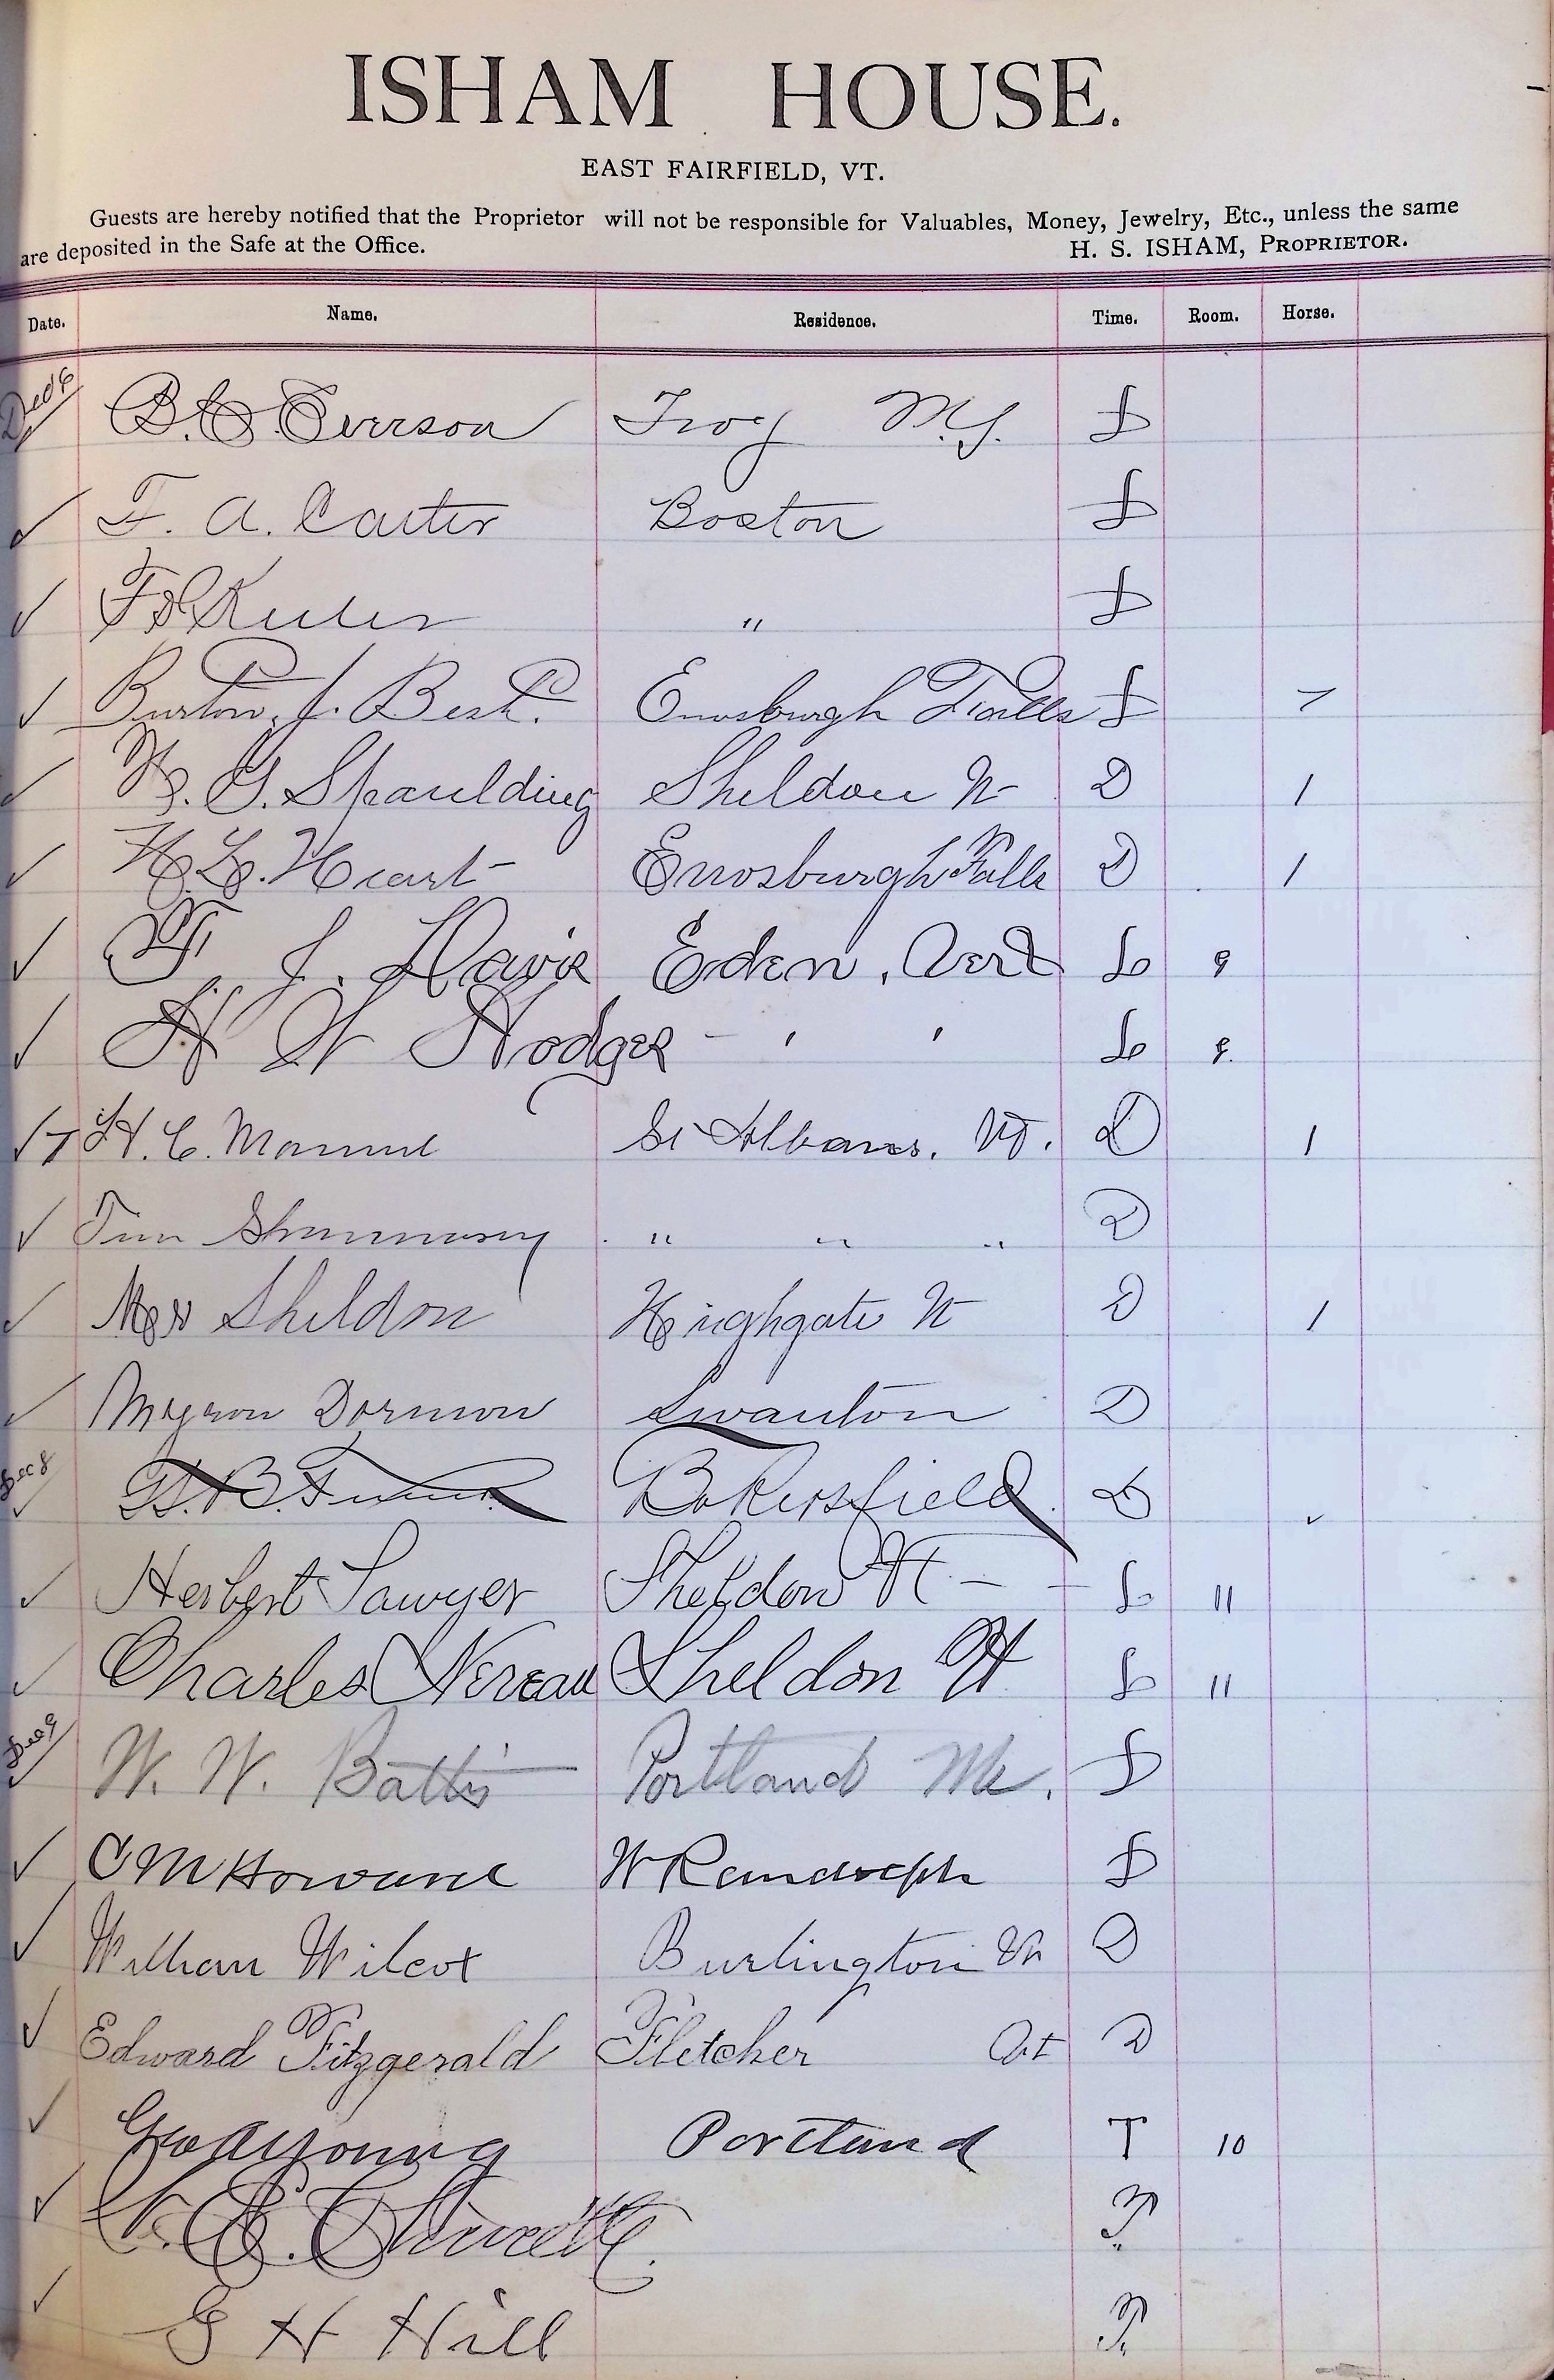 ISHAM HOUSE.
EAST FAIRFIELD, VT.
Guests are hereby notified that the Proprietor will not be responsible for Valuables, Money, Jewelry, Etc., unless the same
are deposited in the Safe at the Office. H. S. ISHAM, PROPRIETOR.
Date. Name. Residence. Time. Room. Horse.
Dec 6 B. C. Everson Troy N.Y.
F. A. Carter Boston
"
Burton. J. Best. Enosburgh Falls
W. G. Spaulding Sheldon Vt D 1
Enosburgh Falls D 1
F. J. Davis Eden, Vert 9
H W Hodges - ' '
H. C. St Albans, Vt. D 1
Tim " " " D
Sheldon Highgate Vt D 1
Myron Dorman Swanton D
Dec 8 Bakersfield
Herbert Sawyer Sheldon Vt - 11
Charles Nereau Sheldon Vt 11
Dec 9 W. W. Portland Me.
C M Howard W Randolph
William Wilcox Burlington Vt D
Edward Fitzgerald Fletcher Vt D
Geo A Young Portland T 10
G H Hill